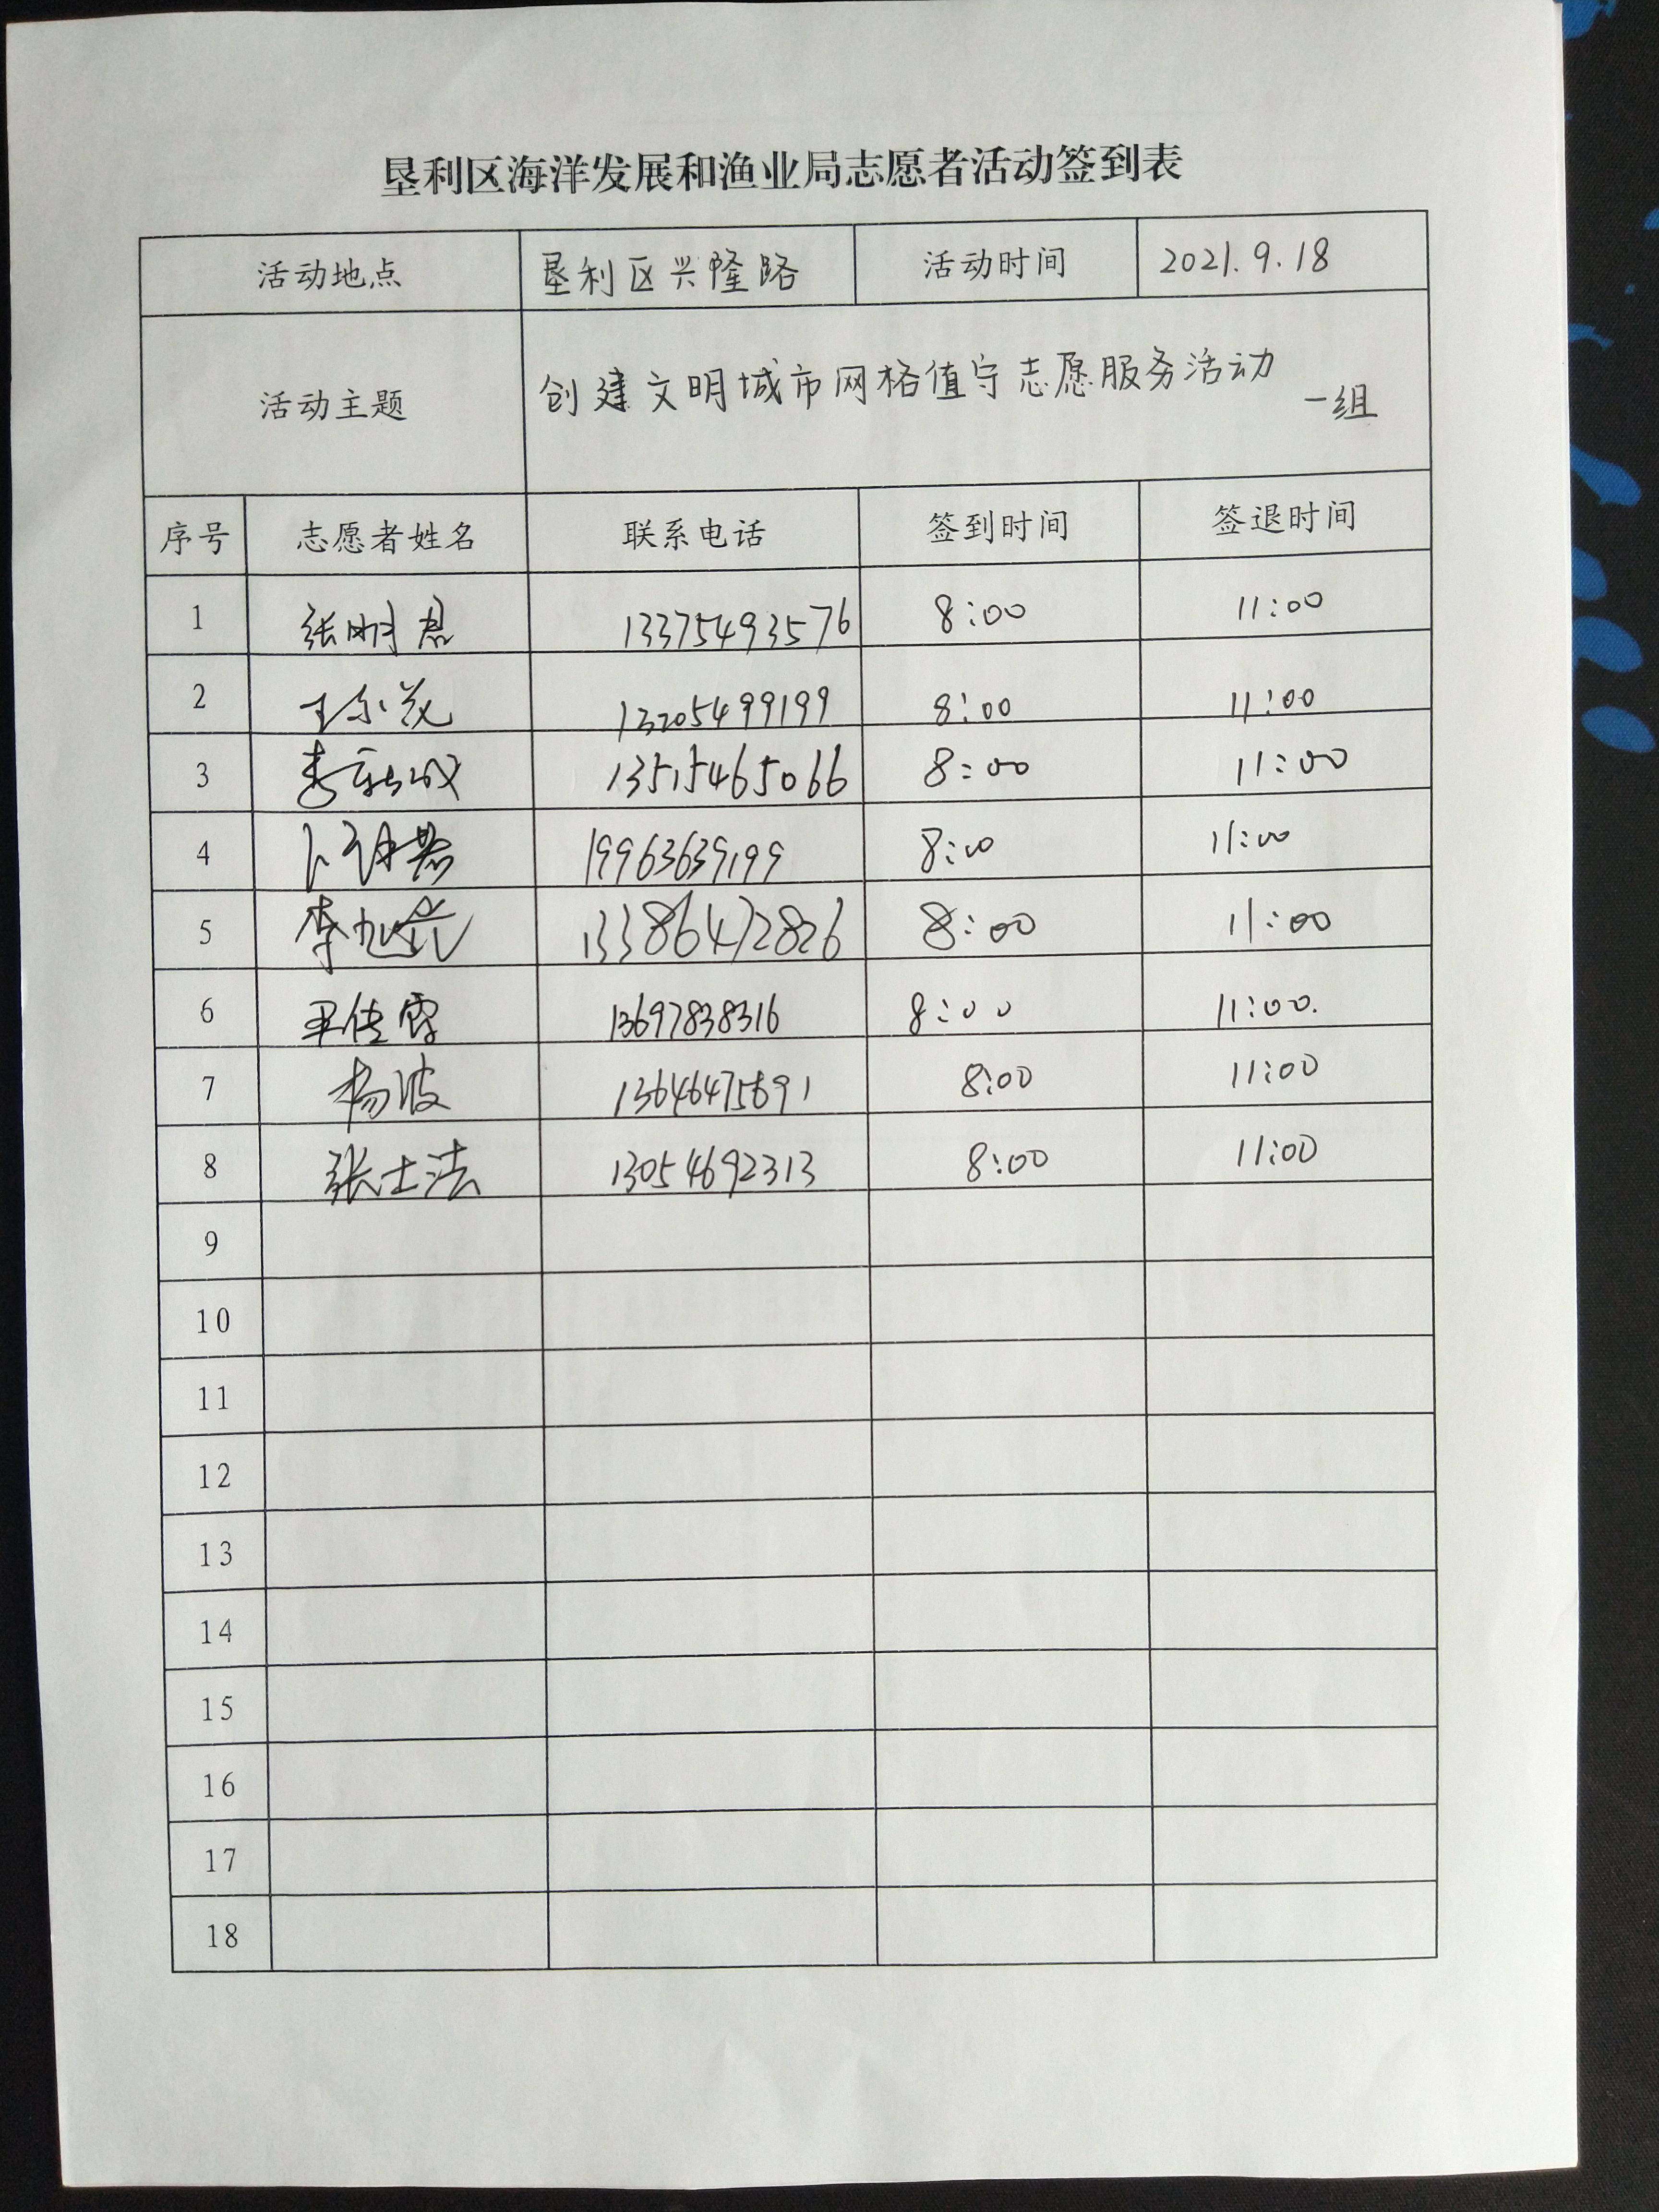 垦利区海洋发展和渔业局志愿者活动签到表
活动地点 垦利区兴隆路 活动时间 2021.9.18
活动主题 创建文明城市网格值守志愿服务活动 一组
序号 志愿者姓名 联系电话 签到时间 签退时间
1 张明君 13375493576 8:00 11:00
2 13205499199 8:00 11:00
3 李 13515465066 8:00 11:00
4 19963639199 8:00 11:00
5 李旭光 13386472826 8:00 11:00
6 13697838316 8:00 11:00.
7 杨波 13646475691 8:00 11:00
8 张士法 13054692313 8:00 11:00
9
10
11
12
13
14
15
16
17
18